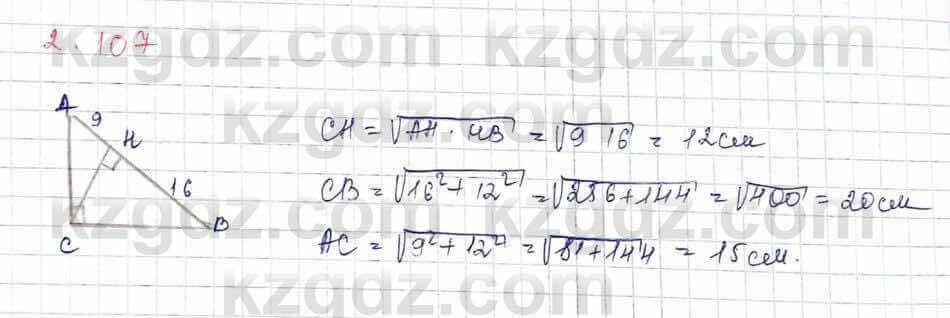 2.107
A
9
H
16
C
B
CH = √AH · HB = √9 16 = 12 см
CB = √16² + 12² = √256 + 144 = √400 = 20 см
AC = √9² + 12² = √81 + 144 = 15 см.
kzgdz.com kzgdz.com
kzgdz.com kzgdz.com
kzgdz.com kzgdz.com